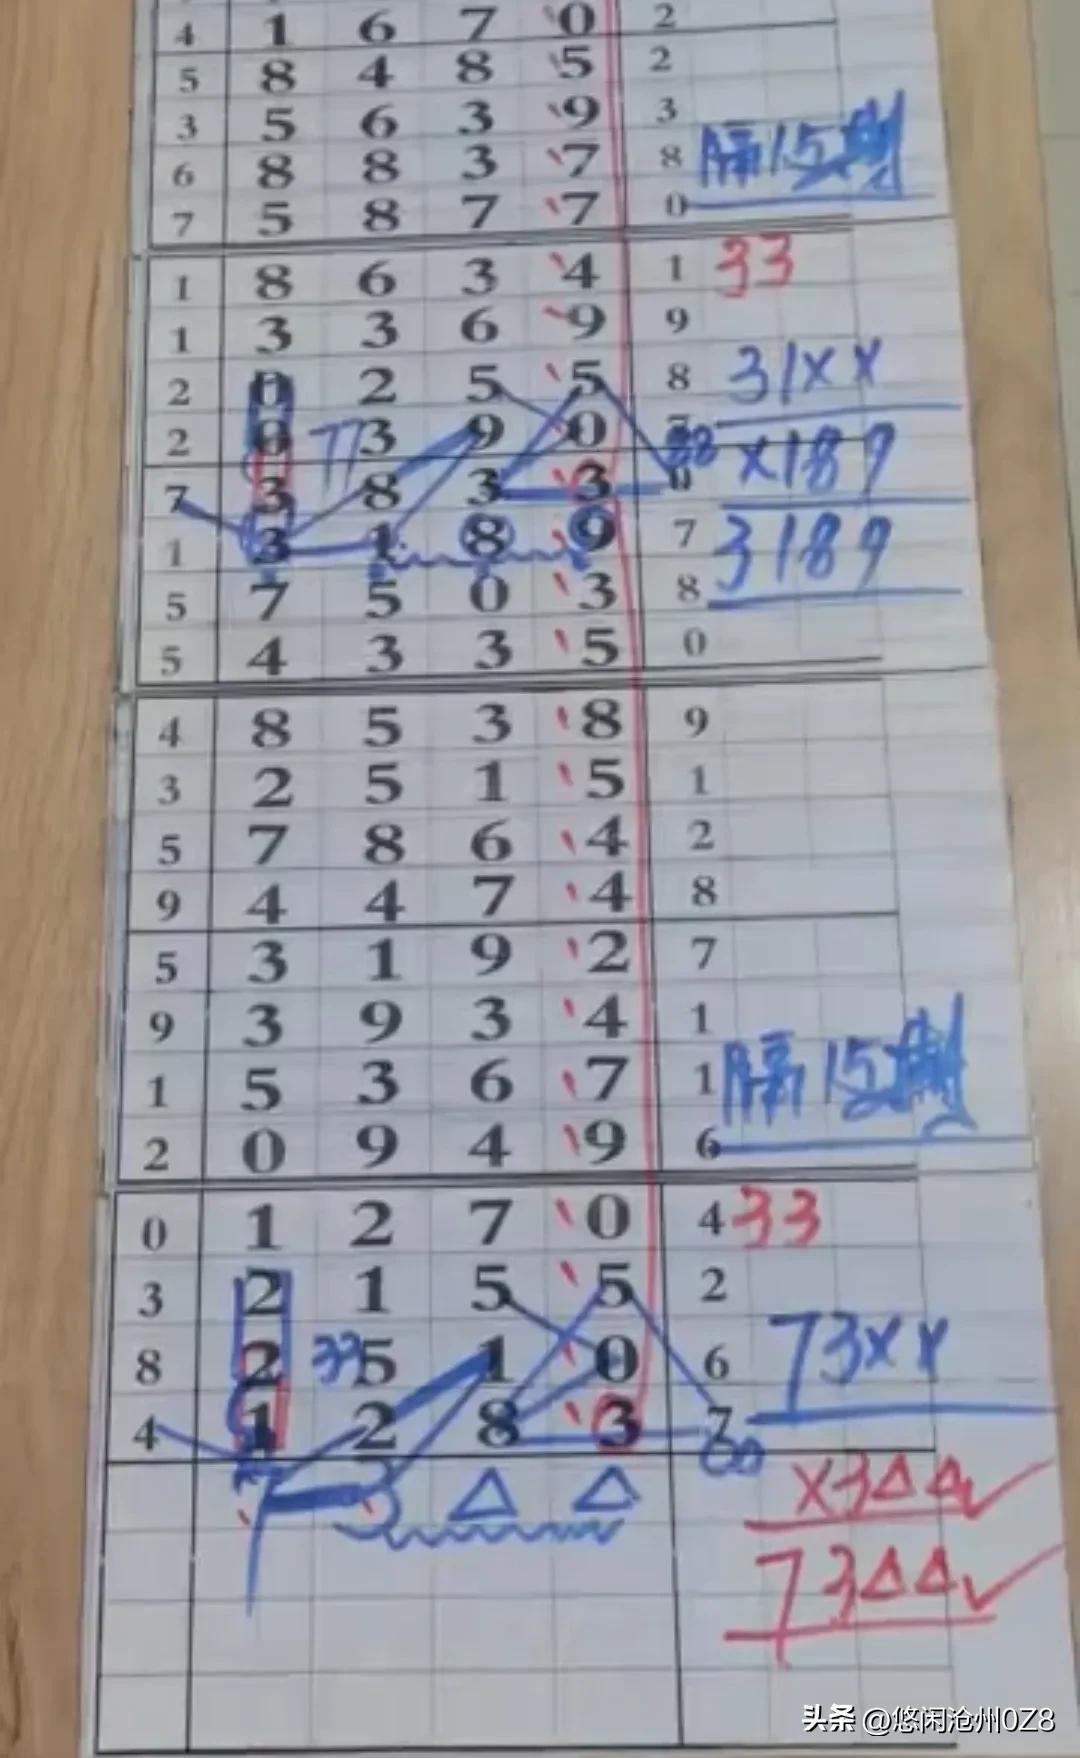 4 1 6 7 0 2
5 8 4 8 5 2
3 5 6 3 9 3
6 8 8 3 7 8 隔15期
7 5 8 7 7 0
1 8 6 3 4 1 33
1 3 3 6 9 9
2 0 2 5 5 8 31××
2 0 77 3 9 0 ×189
7 3 8 3 3 0
1 3 1 8 9 7 3189
5 7 5 0 3 8
5 4 3 3 5 0
4 8 5 3 8 9
3 2 5 1 5 1
5 7 8 6 4 2
9 4 4 7 4 8
5 3 1 9 2 7
9 3 9 3 4 1
1 5 3 6 7 1 隔15期
2 0 9 4 9 6
0 1 2 7 0 4 33
3 2 1 5 5 2
8 2 33 5 1 0 6 73××
4 1 2 8 3 7
7 3 △ △ ×3△△✓
73△△✓
头条 @悠闲沧州0Z8